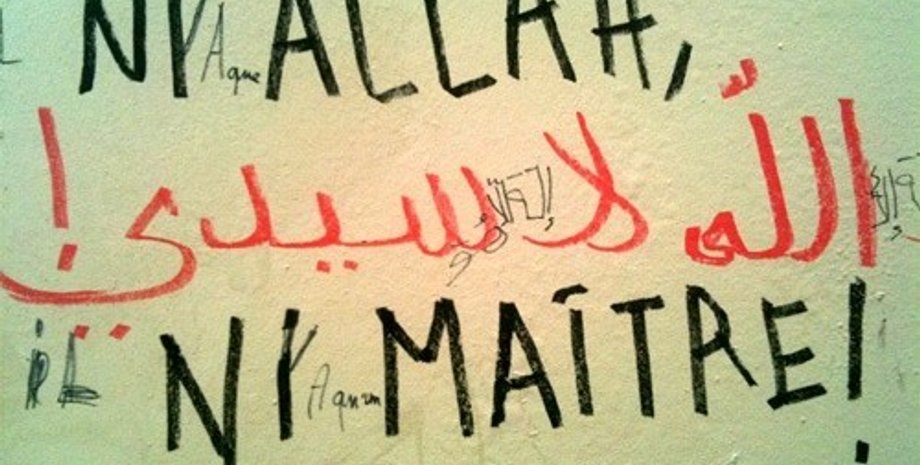 NY A que ALLAH,
اللّه لا سيدي!
iL NY A qu'un MAÎTRE!